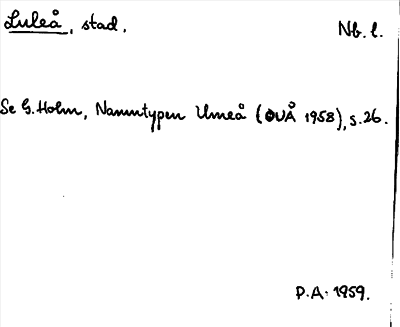 Luleå, stad. Nb. l.
Se G. Holm, Namntypen Umeå (OUÅ 1958), s. 26.
P.A. 1959.